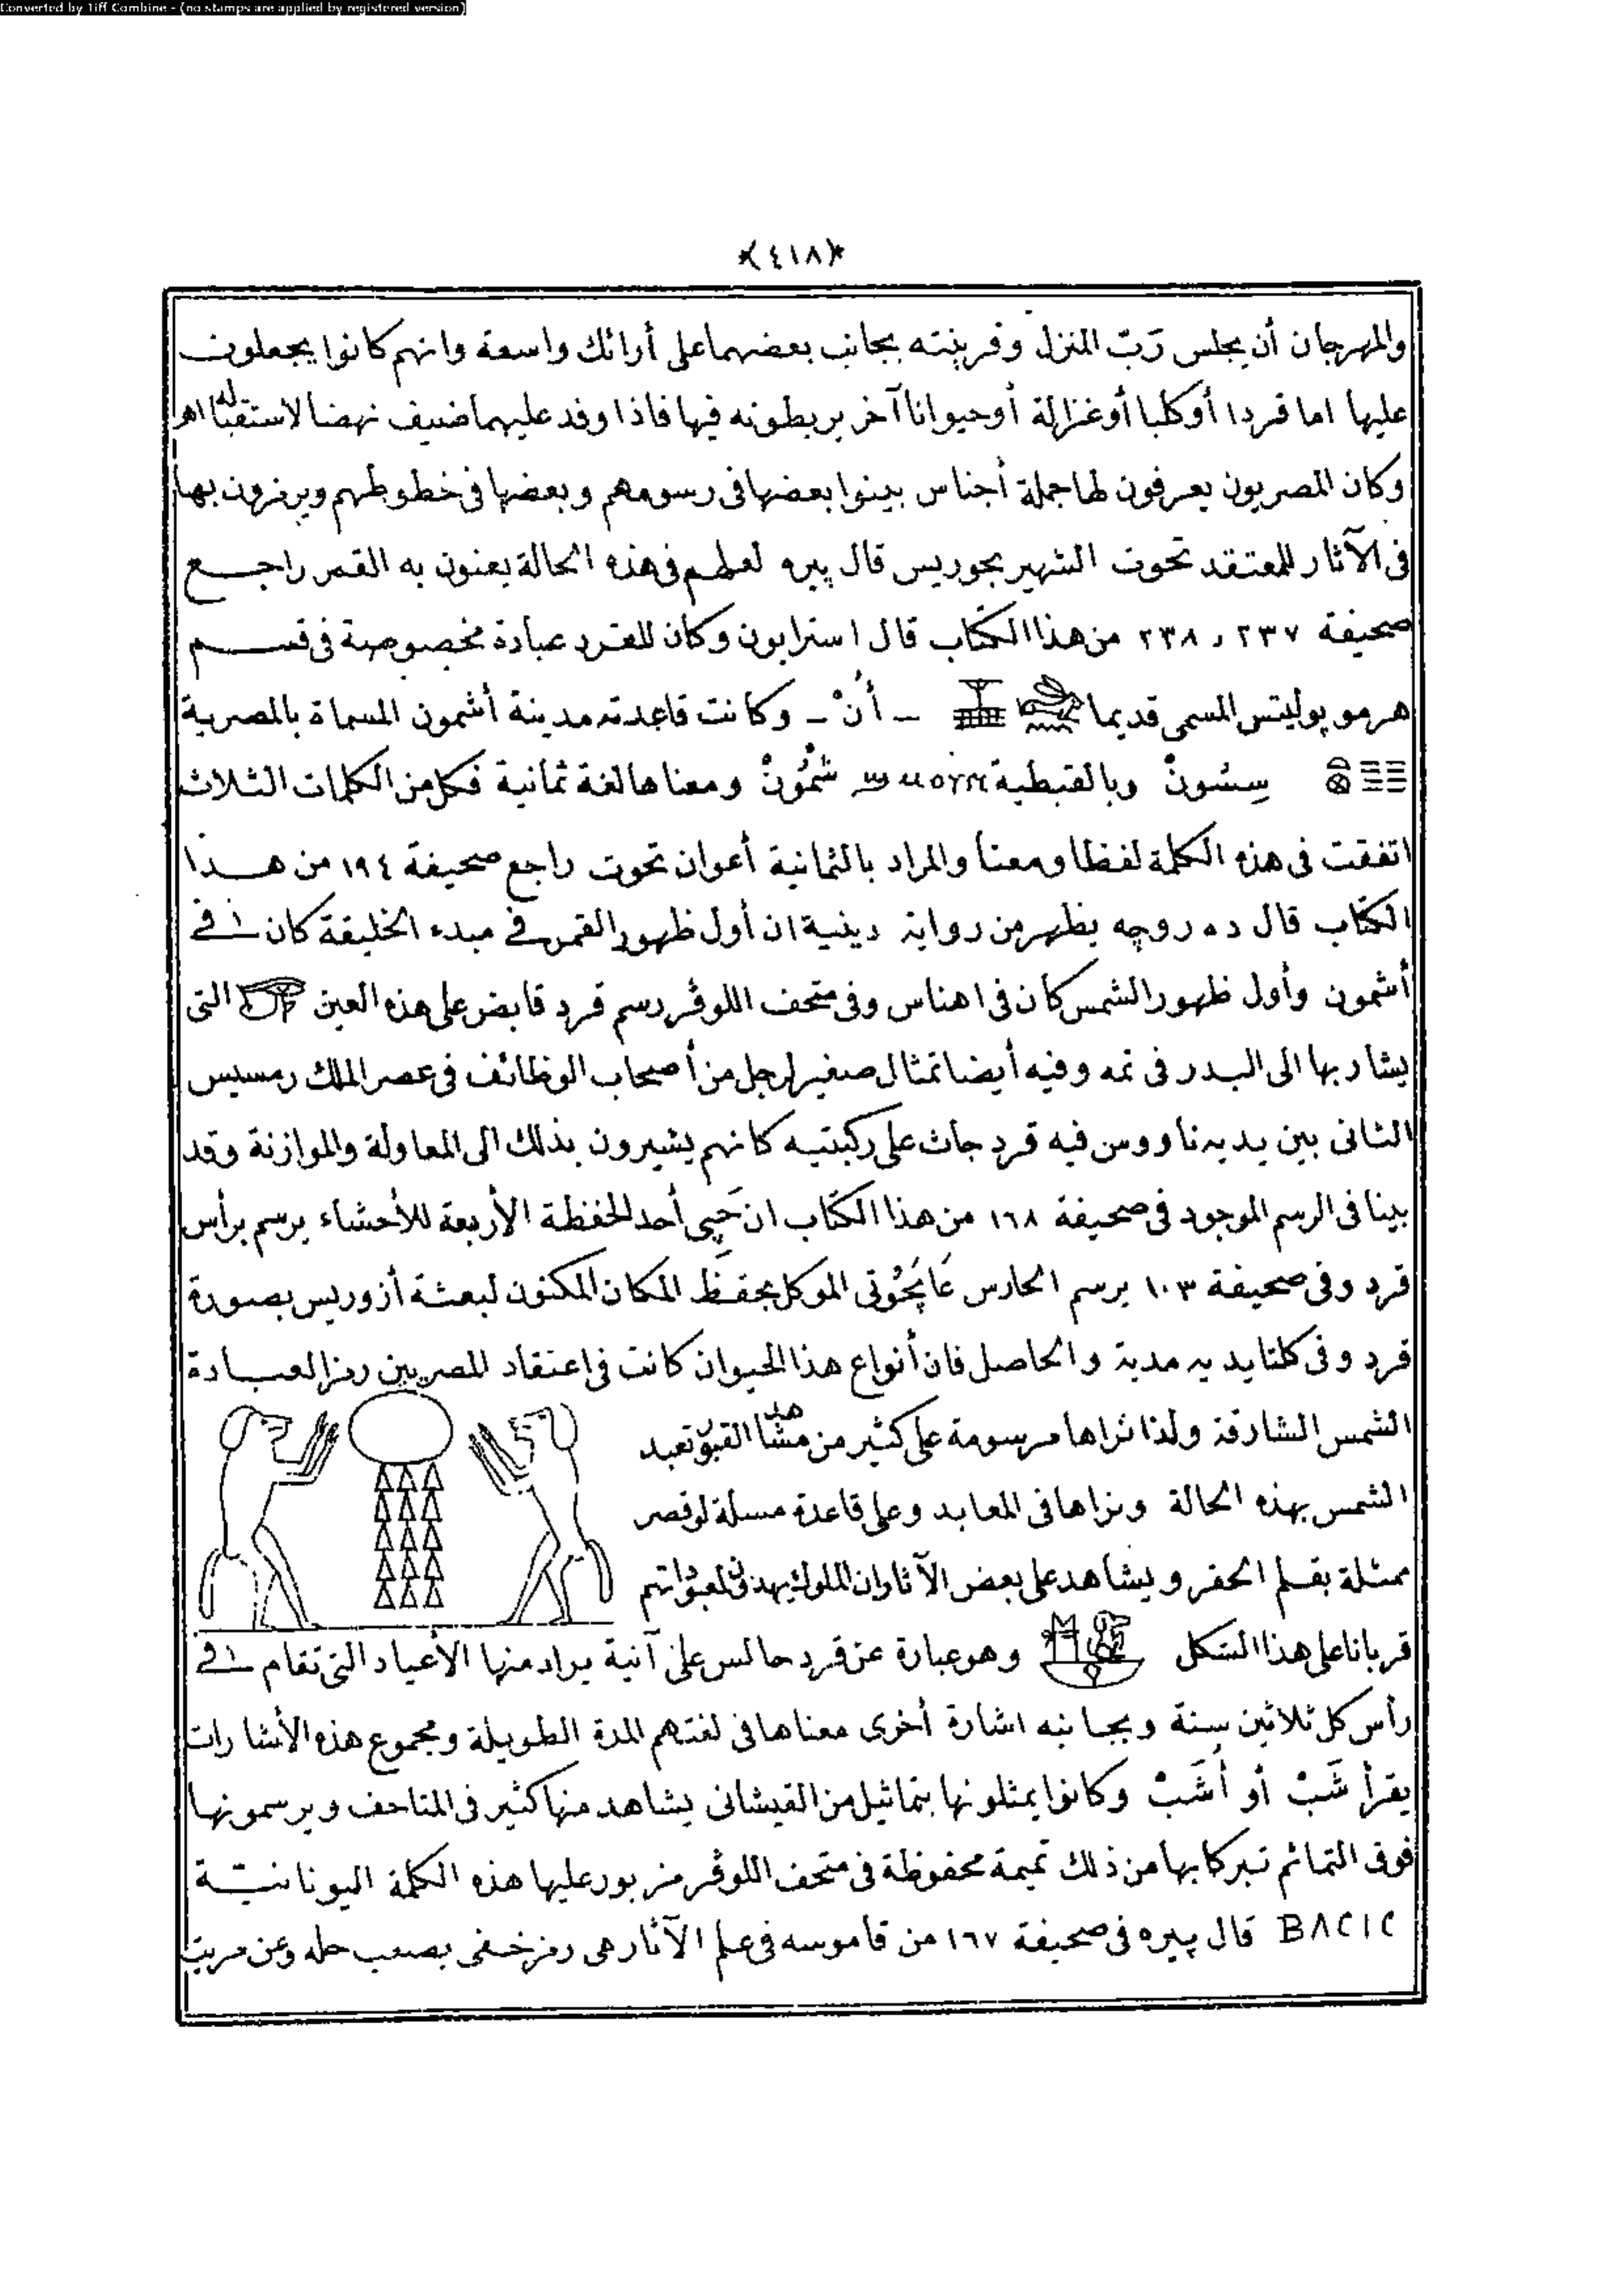 Converted by Tiff Combine - (no stamps are applied by registered version)
﴿٤١٨﴾
والمهرجان أن يجلس رَبّ المنزل وقرينته بجانب بعضهما على أرائك واسعة وانهم كانوا يجعلون
عليها اما قردا أو كلبا أو غزالة أو حيوانا آخر يربطونه فيها فاذا وفد عليهما ضيف نهضا لاستقباله اهـ
وكان المصريون يعرفون لها جملة أجناس بينوا بعضها فى رسومهم وبعضها فى خطوطهم ويرمزون بها
فى الآثار للمعتقد تحوت الشهير بجوريس قال پيره لعلهم فى هذه الحالة يعنون به القمر راجع
صحيفة ٢٣٧ و ٢٣٨ من هذا الكتاب قال استرابون وكان للقرد عبادة مخصوصة فى قسم
هرمو پوليتس المسمى قديما ـ أُنْ ـ وكانت قاعدته مدينة أشمون المسماة بالمصرية
سِسُونْ وبالقبطية شْمُونْ ومعناها لغة ثمانية فكل من الكلمات الثلاث
اتفقت فى هذه الكلمة لفظا ومعنا والمراد بالثمانية أعوان تحوت راجع صحيفة ١٩٤ من هذا
الكتاب قال ده روچه يظهر من رواية دينية ان أول ظهور القمر فى مبدء الخليقة كان فى
أشمون وأول ظهور الشمس كان فى اهناس وفى متحف اللوڤر رسم قرد قابض على هذه العين التى
يشار بها الى البدر فى تمه وفيه أيضا تمثال صغير لرجل من أصحاب الوظائف فى عصر الملك رمسيس
الثانى بين يديه ناووس فيه قرد جاث على ركبتيه كانهم يشيرون بذلك الى المعاولة والموازنة وقد
بينا فى الرسم الموجود فى صحيفة ١٦٨ من هذا الكتاب ان حَپى أحد الحفظة الأربعة للأحشاء يرسم برأس
قرد وفى صحيفة ١٠٣ يرسم الحارس الموكل بحفظ المكان المكنون لبعثة أزوريس بصورة
قرد وفى كلتا يديه مدية والحاصل فان أنواع هذا الحيوان كانت فى اعتقاد المصريين رمز العبادة
الشمس الشارقة ولذا نراها مرسومة على كثير من مشاهد القبور تعبد
الشمس بهذه الحالة ونراها فى المعابد وعلى قاعدة مسلة لوقصر
ممثلة بقلم الحفر ويشاهد على بعض الآثار ان الملوك يهدون لمعبوداتهم
قربانا على هذا الشكل وهو عبارة عن قرد جالس على آنية يراد منها الأعياد التى تقام فى
رأس كل ثلاثين سنة وبجانبه اشارة أخرى معناها فى لغتهم المدة الطويلة ومجموع هذه الأشارات
يقرأ شَبْ أو أُشَبْ وكانوا يمثلونها بتماثيل من القيشانى يشاهد منها كثير فى المتاحف ويرسمونها
فوق التمائم تبركا بها من ذلك تميمة محفوظة فى متحف اللوڤر مزبور عليها هذه الكلمة اليونانيّة
BACIC قال پيره فى صحيفة ١٦٧ من قاموسه فى علم الآثار هى رمز خفى يصعب حله وعن مريت